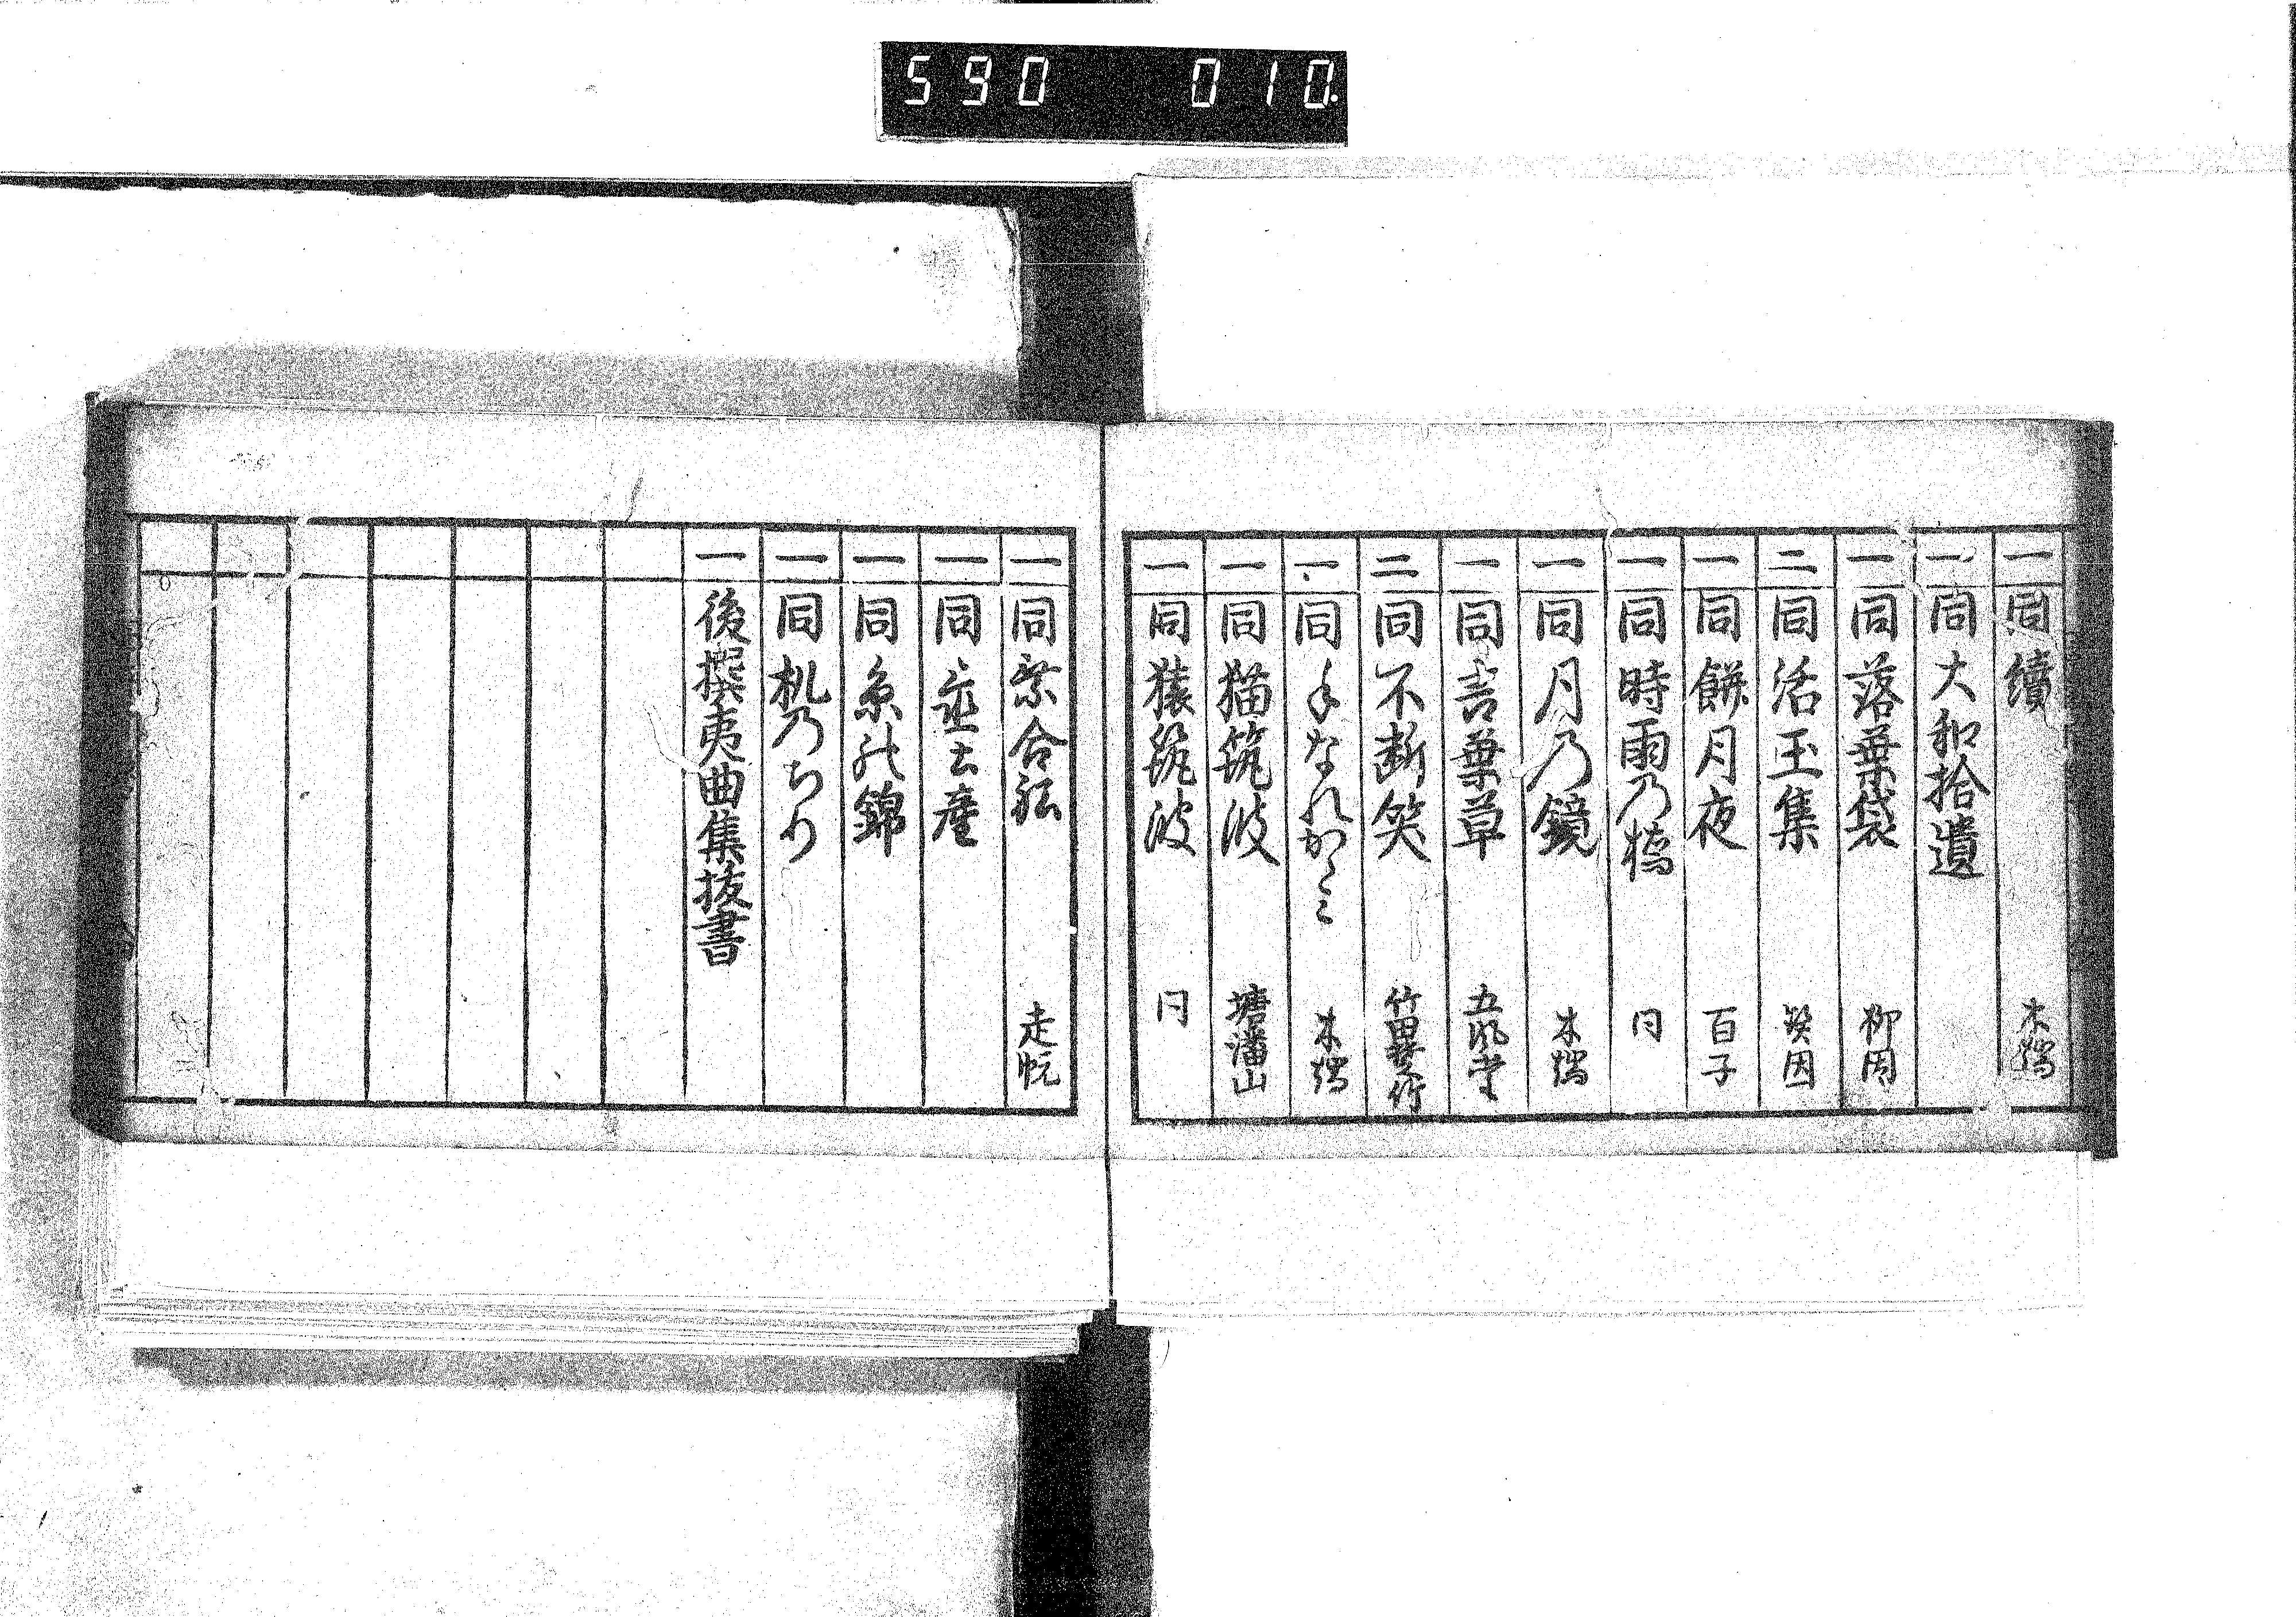 590 010.
一 同 續 木端
一 同 大和拾遺
一 同 落葉袋 柳因
二 同 活玉集 癸因
一 同 餅月夜 百子
一 同 時雨乃橋 同
一 同 月乃鏡 木端
一 同 言葉草 五風堂
二 同 不断笑
一 同 手なれかゝミ 木端
一 同 猫筑波 塘潘山
一 同 猿筑波 同
一 同 紫合 走帆
一 同
一 同 糸の錦
一 同 机乃ちり
一 後撰夷曲集抜書